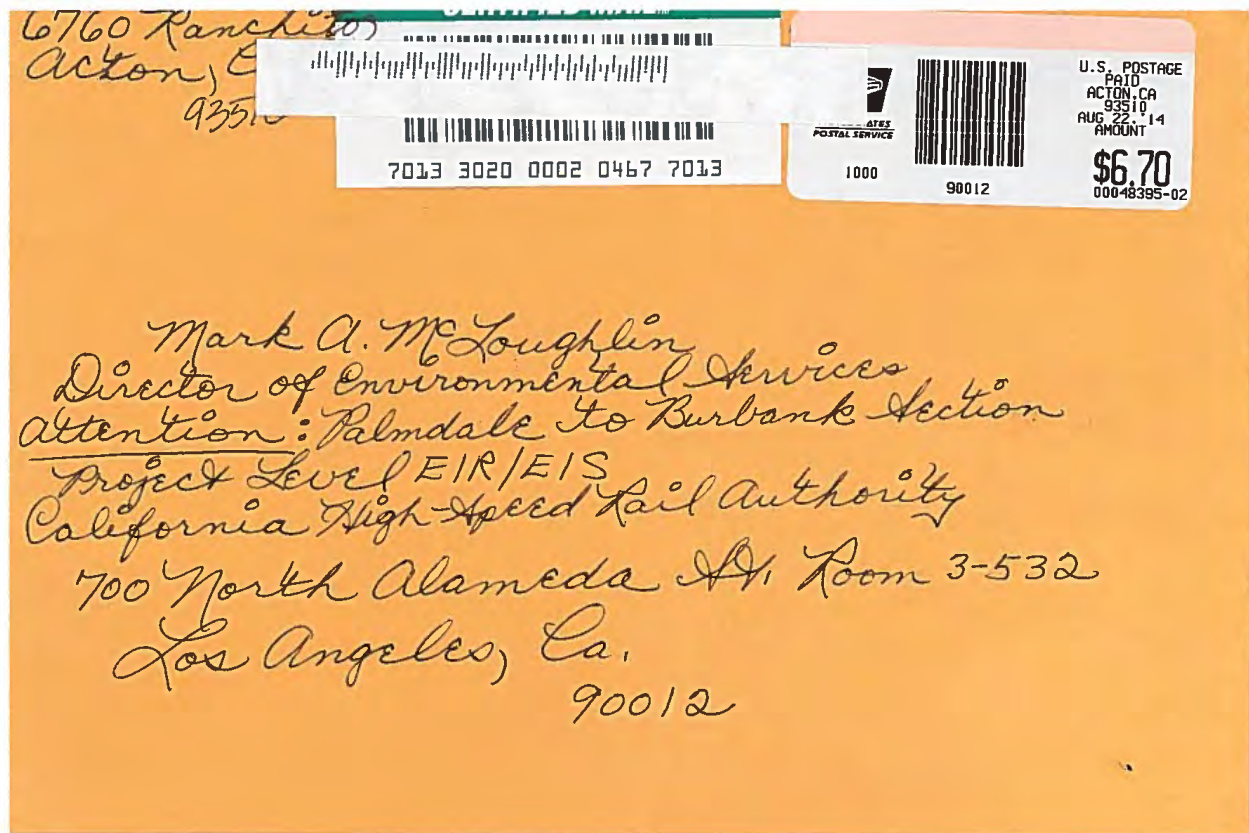 6760 Ranchitos
Acton, C
9351
7013 3020 0002 0467 7013
POSTAL SERVICE
1000
90012
U.S. POSTAGE
PAID
ACTON, CA
93510
AUG 22, '14
AMOUNT
$6.70
00048395-02
Mark A. McLoughlin
Director of Environmental Services
Attention: Palmdale to Burbank Section
Project Level EIR/EIS
California High-Speed Rail Authority
700 North Alameda St. Room 3-532
Los Angeles, Ca.
90012